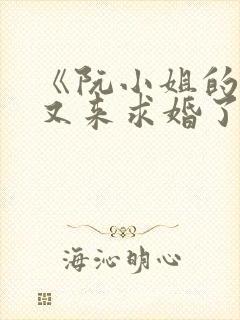 《阮小姐的
又来求婚了
海沁明心